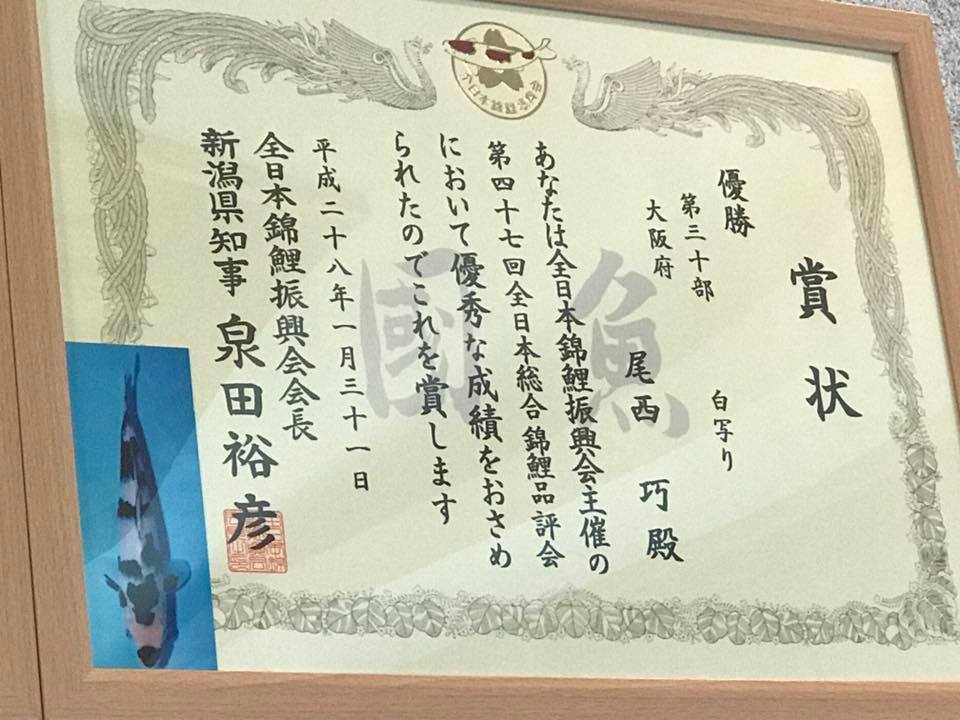 全日本錦鯉振興会
賞状
優勝
白写り
第三十部
大阪府
尾西 巧 殿
あなたは全日本錦鯉振興会主催の
第四十七回全日本総合錦鯉品評会
において優秀な成績をおさめ
られたのでこれを賞します
平成二十八年一月三十一日
全日本錦鯉振興会会長
新潟県知事 泉田裕彦
魚
國